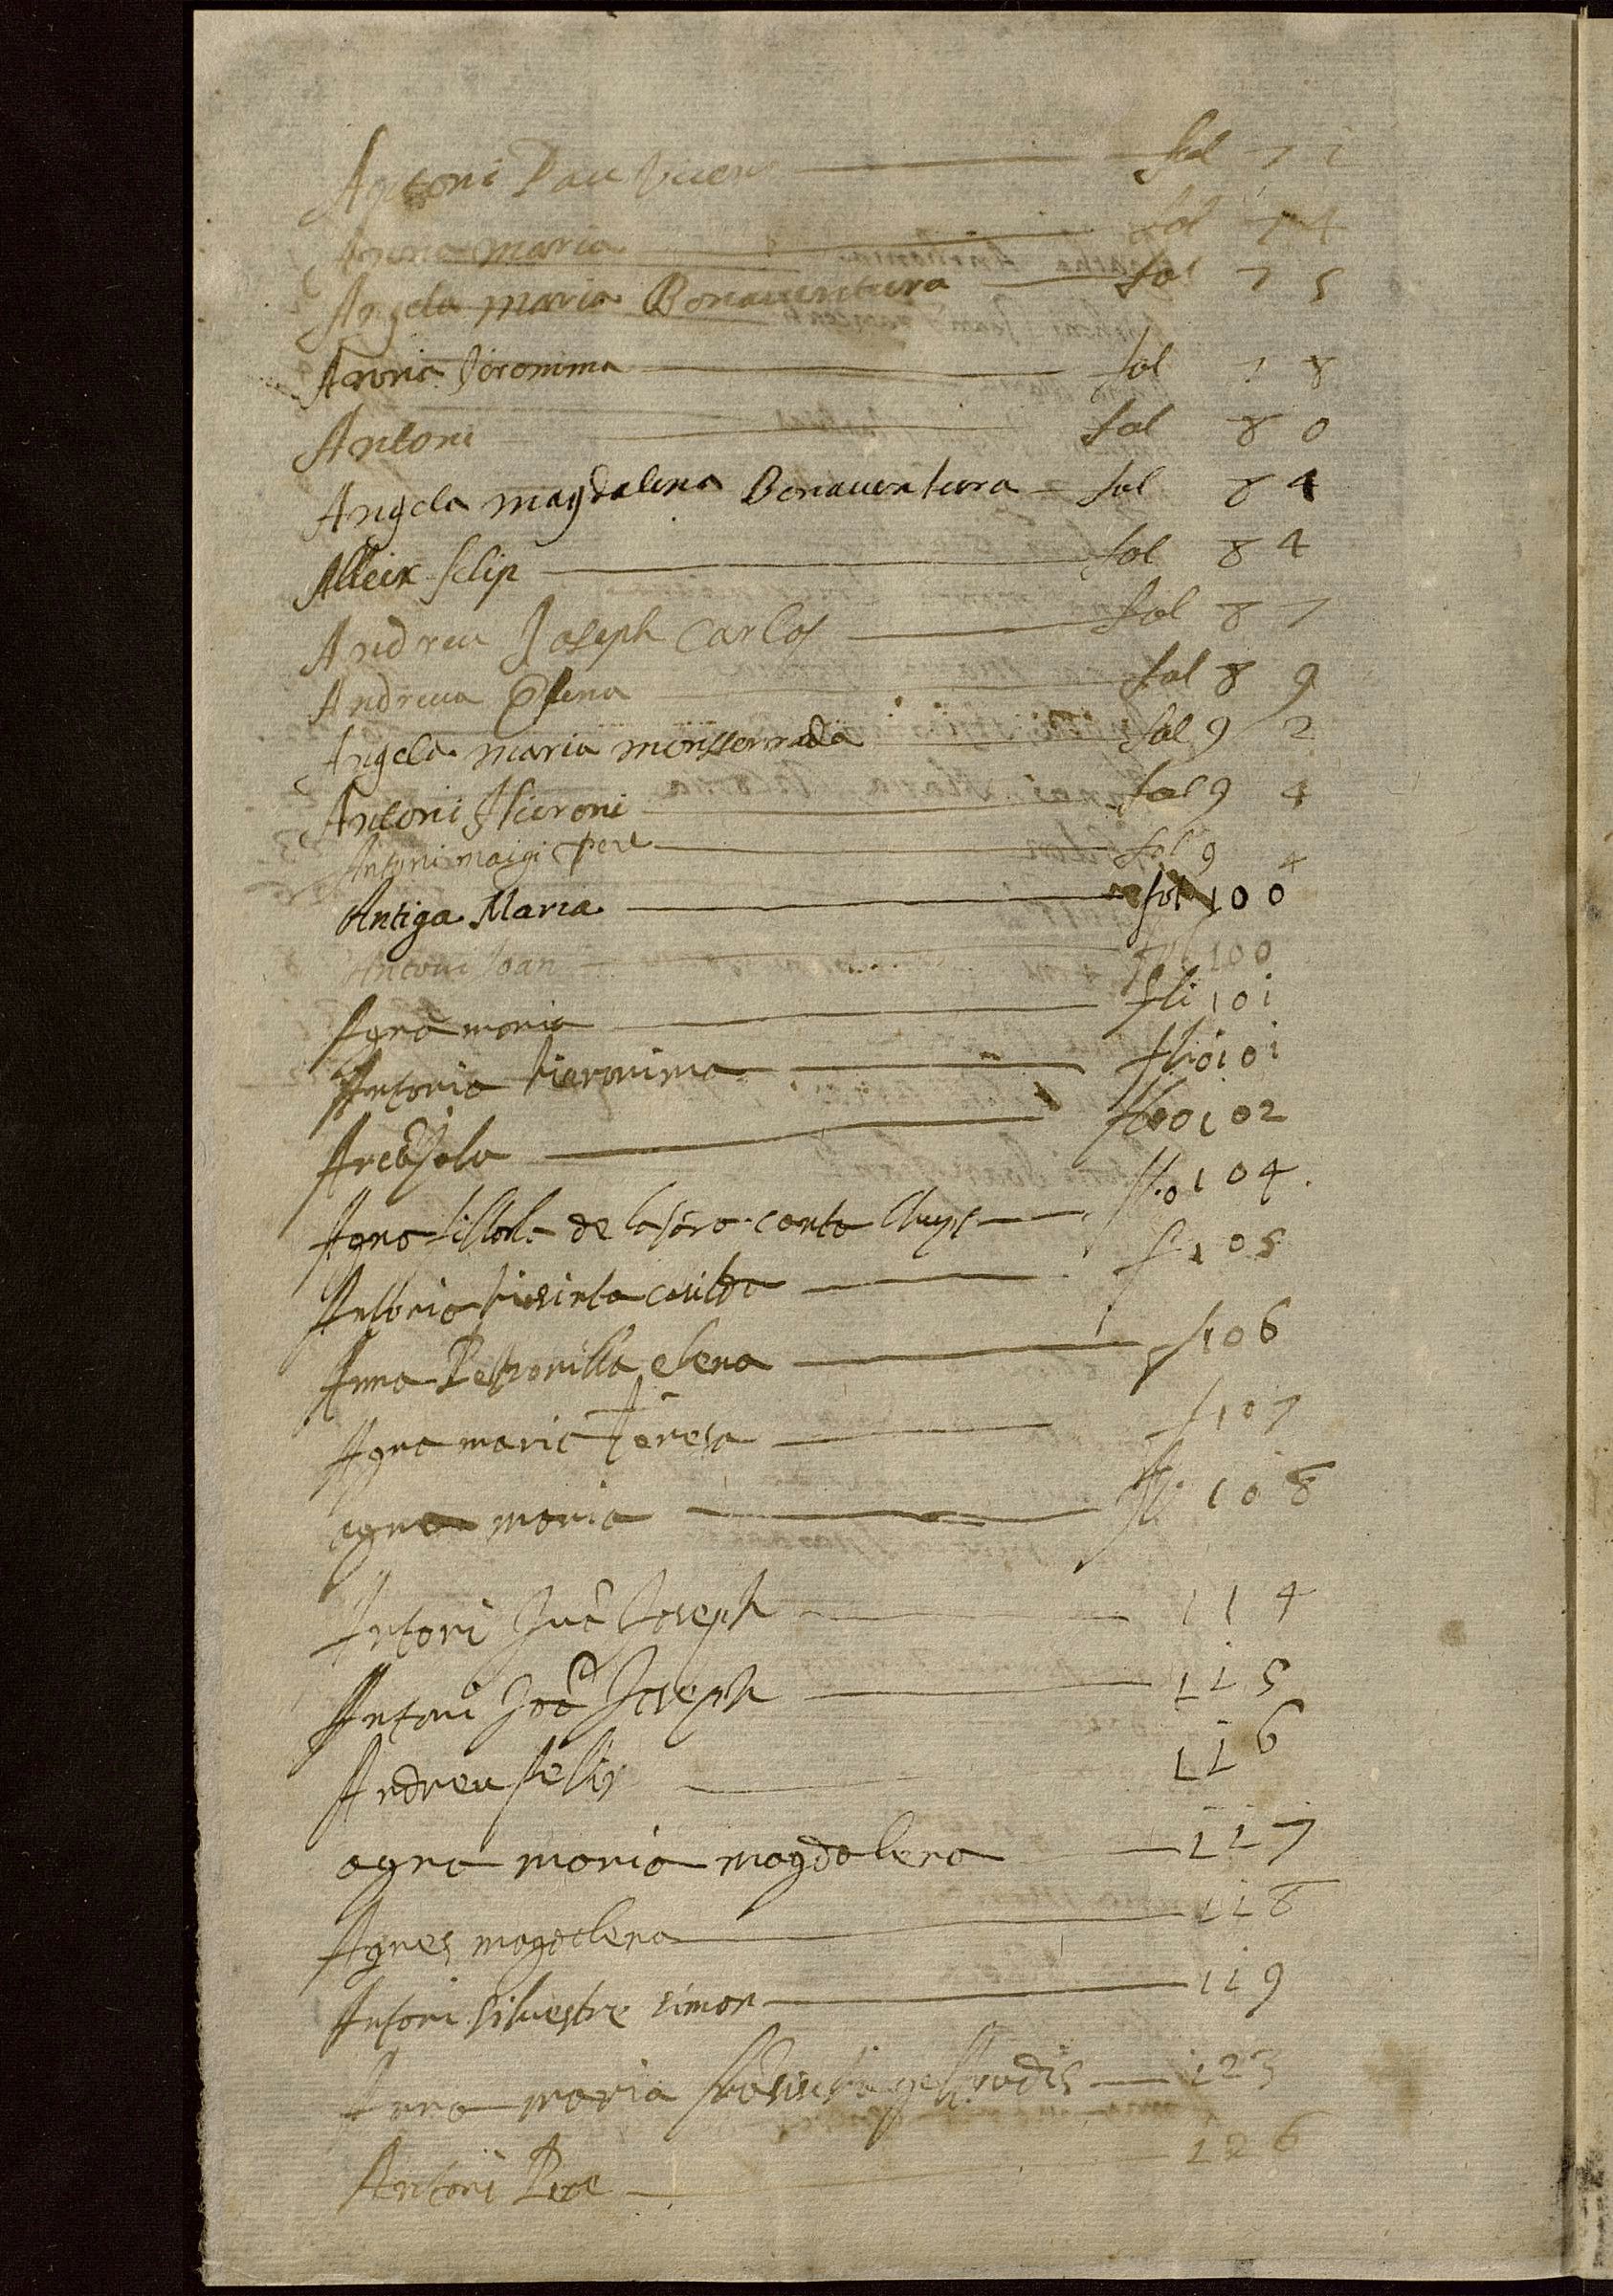 Antoni Pau Vicens fol 7 2
Anna maria fol 7 4
Angela maria Bonaventura fol 7 5
Anna Jeronima fol 7 8
Antoni fol 8 0
Angela magdalena Bonaventura fol 8 4
Alleix felip fol 8 4
Andreu Joseph Carlos fol 8 7
Andreua Elena fol 8 9
Angela maria monsserrada fol 9 2
Antoni Hieroni fol 9 4
Antoni magi pere fol 9 4
Antiga Maria fol 100
Antoni Joan fol 100
Agna maria 101
Antonia hieronima 101
102
Agna de 104.
Antonia casilda f 105
Anna Petronilla elena f 106
Agna maria Teresa f 107
agna maria 108
Antoni Juã Joseph 114
Antoni Joã Joseph 115
Andreu felix 116
agna maria magdalena 117
Agnes magdalena 118
Antoni silvestre simon 119
Anna maria 123
Antoni Pere 126